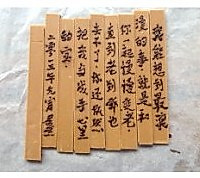 我能想到最浪
漫的事就是和
你一起慢慢变老
直到老到哪也
去不了你还依然
把我当成手心里
的宝
二零一五年元宵